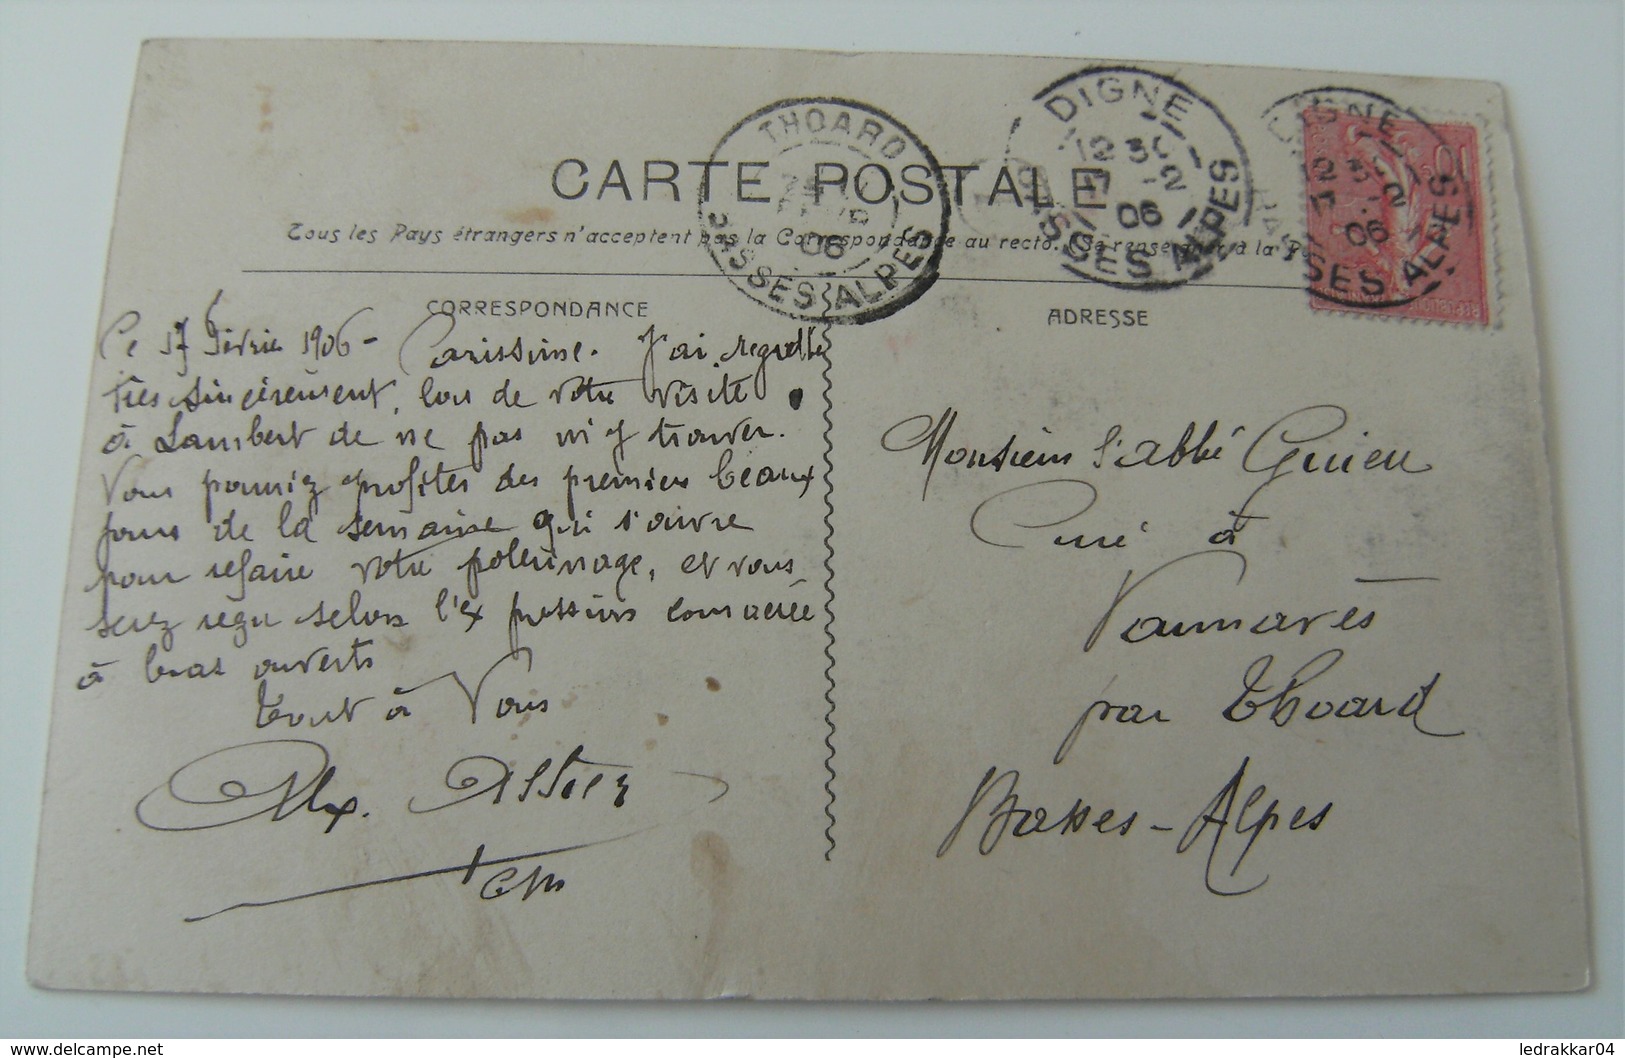 CARTE POSTALE
Tous les Pays étrangers n'acceptent pas la Correspondance au recto. (Se renseigner à la
THOARD
06
BASSES ALPES
DIGNE
12 30
17 - 2
06
BASSES ALPES
DIGNE
12 3
06
BASSES ALPES
CORRESPONDANCE
Ce 17 Février 1906 - Carissime. J'ai regretté
très sincèrement, lors de votre visite
à Lambert de ne pas m'y trouver.
Vous pourriez profiter des premiers beaux
jours de la semaine qui s'ouvre
pour refaire votre pélerinage, et vous
serez reçu selon l'expression consacrée
à bras ouverts
Tout à Vous
Alx. Astier
ADRESSE
Monsieur l'abbé Guieu
Curé à
Vaunavès
par Thoard
Basses-Alpes
www.delcampe.net
ledrakkar04